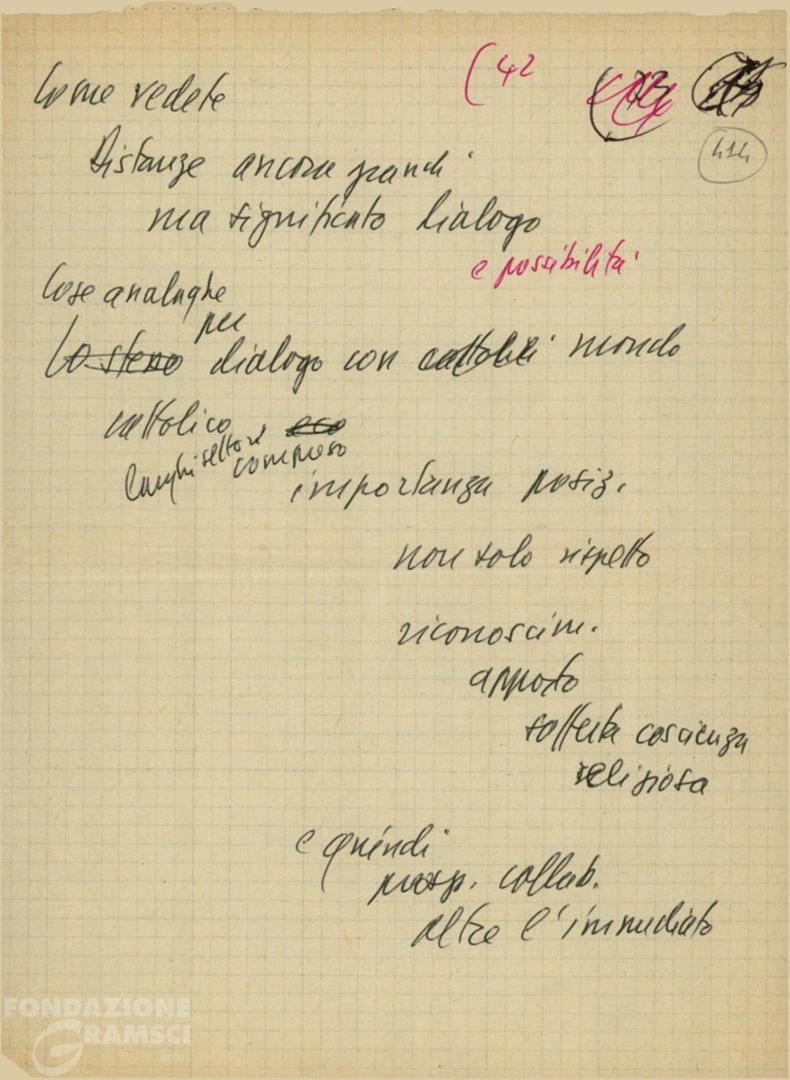 (42
414
Come vedete
Distanze ancora grandi
ma significato dialogo
e possibilità
Cose analoghe
per
Lo stesso dialogo con cattolici mondo
cattolico
larghi settori compreso
importanza posiz.
non solo rispetto
riconoscim.
apporto
sofferta coscienza
religiosa
e quindi
prosp. collab.
oltre l'immediato
FONDAZIONE
GRAMSCI
onlus